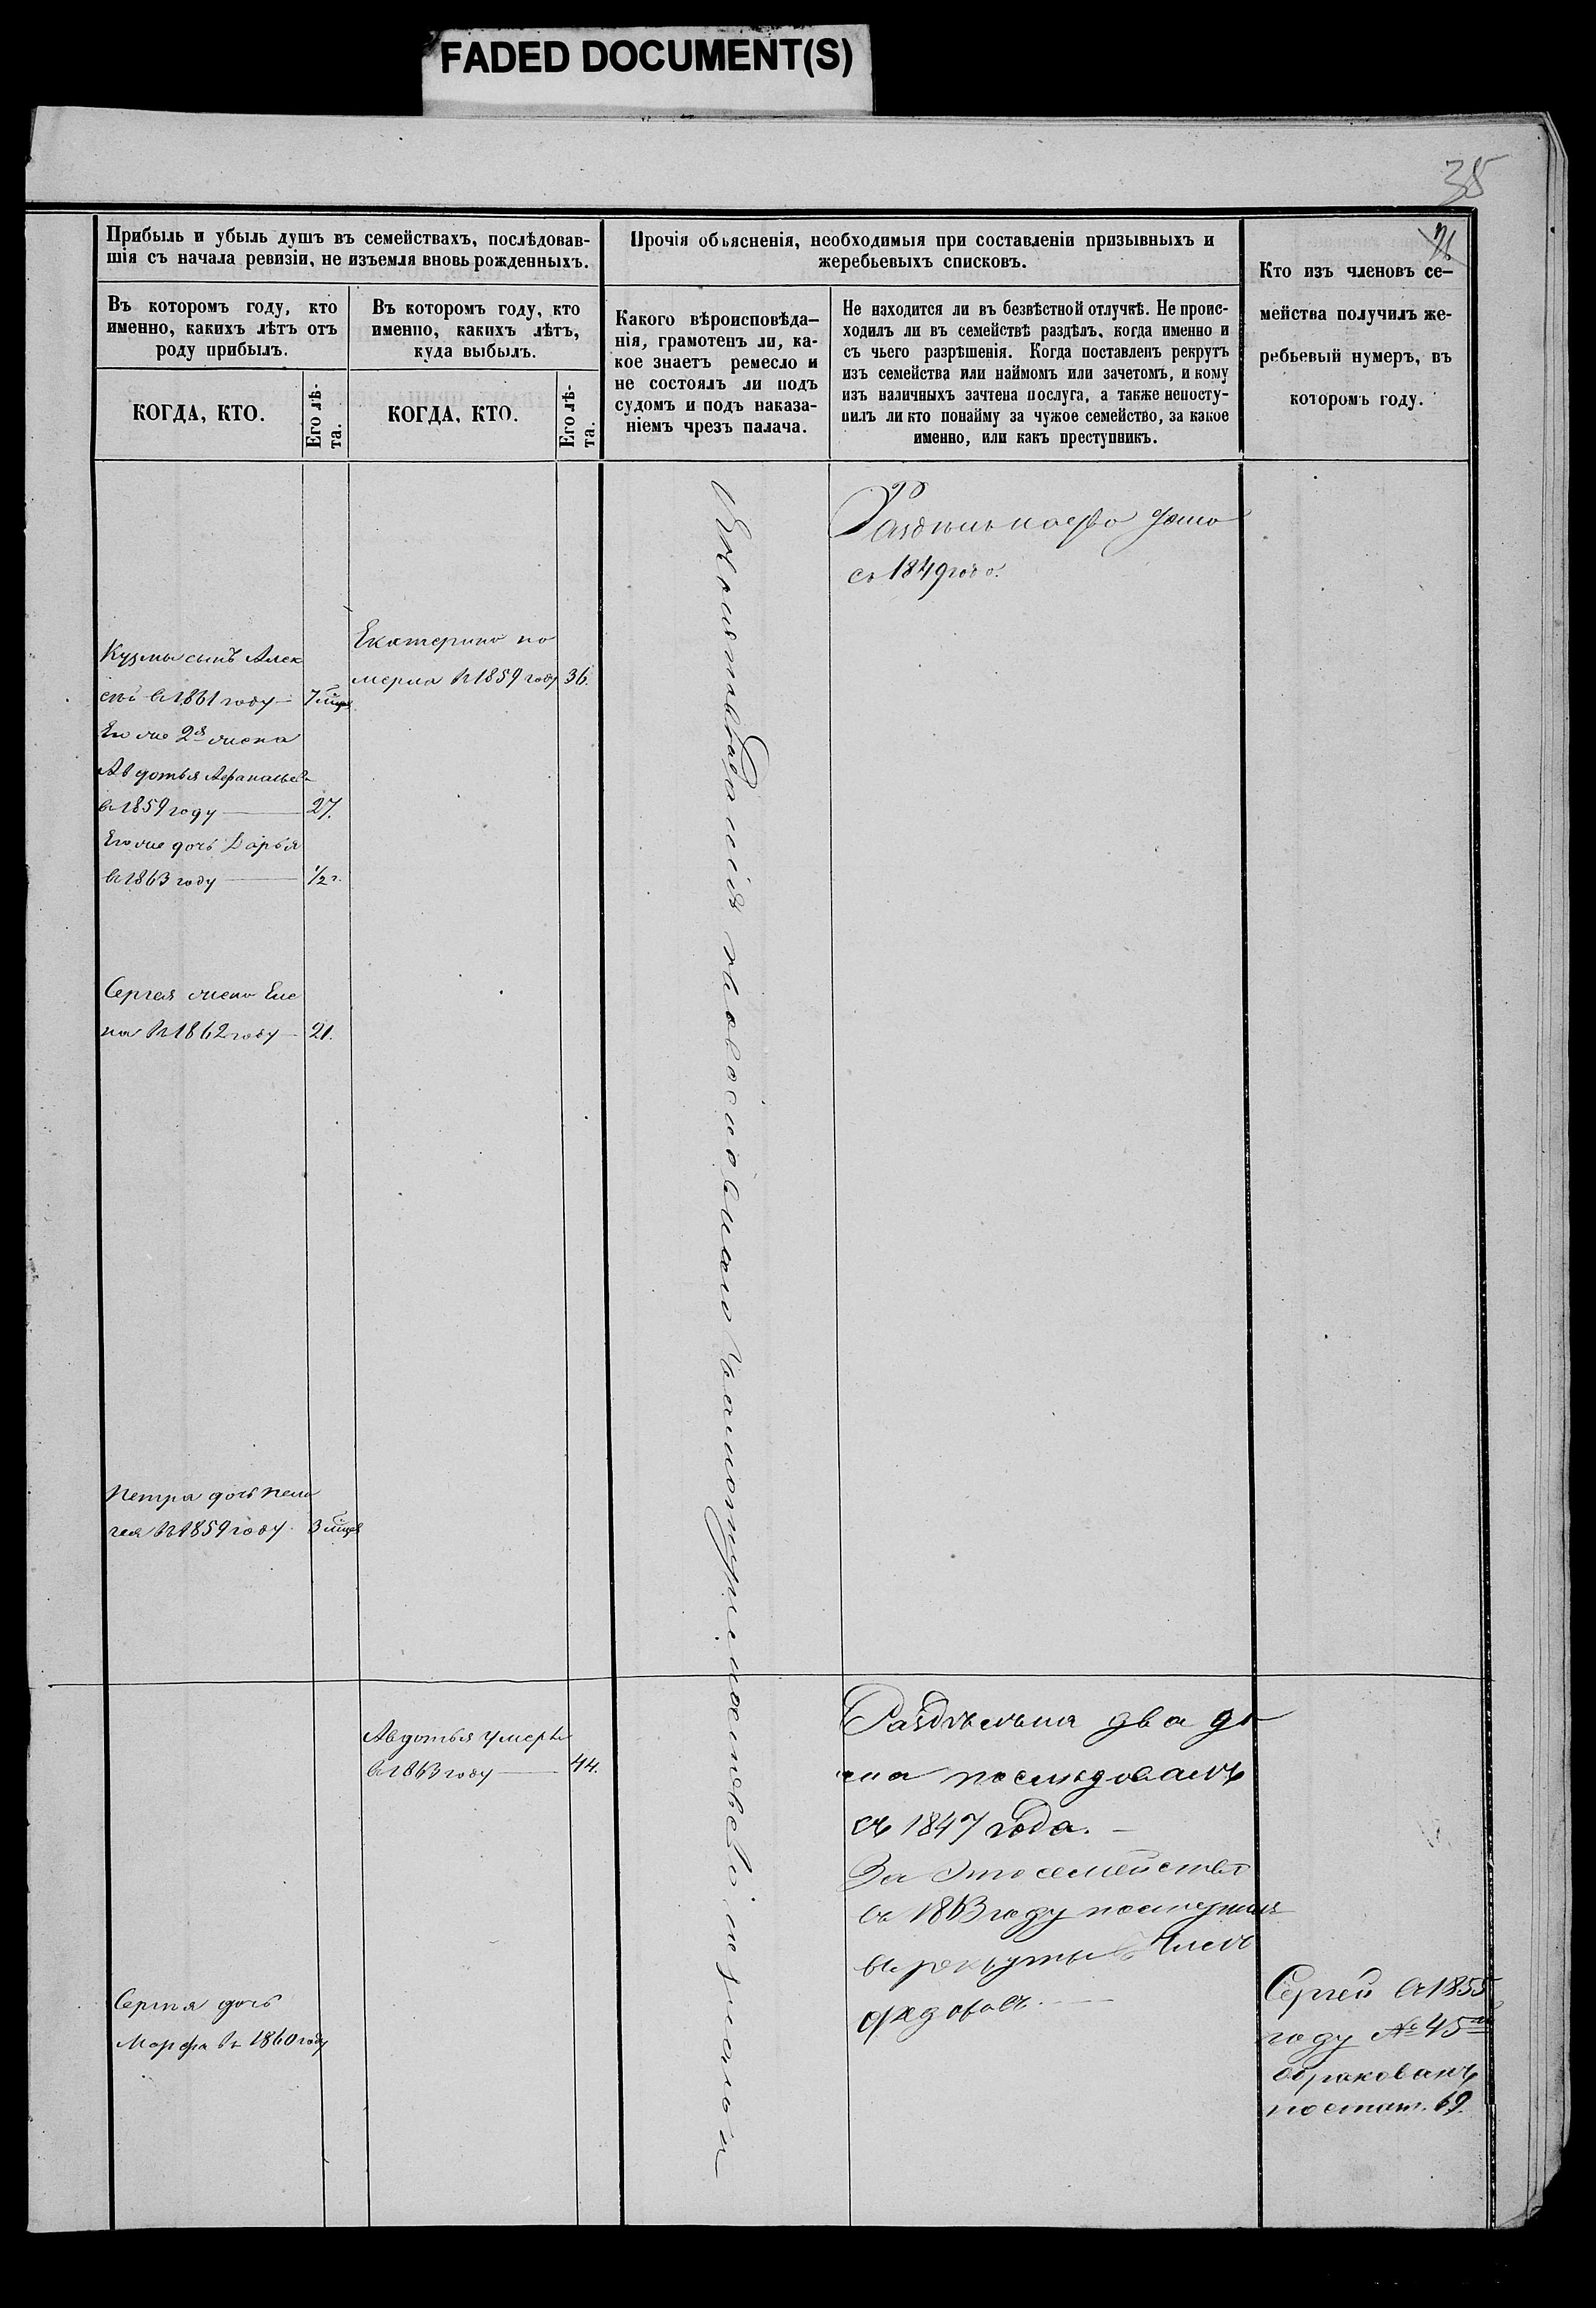 FADED DOCUMENT(S)
35
Прибыль и убыль душъ въ семействахъ, послѣдовав-
шія съ начала ревизіи, не изъемля вновь рожденныхъ.
Въ которомъ году, кто
именно, какихъ лѣтъ отъ
роду прибылъ.
КОГДА, КТО.
Его лѣ-
та.
Въ которомъ году, кто
именно, какихъ лѣтъ,
куда выбылъ.
КОГДА, КТО.
Его лѣ-
та.
Прочія объясненія, необходимыя при составленіи призывныхъ и
жеребьевыхъ списковъ.
Какого вѣроисповѣда-
нія, грамотенъ ли, ка-
кое знаетъ ремесло и
не состоялъ ли подъ
судомъ и подъ наказа-
ніемъ чрезъ палача.
Не находится ли въ безвѣстной отлучкѣ. Не проис-
ходилъ ли въ семействѣ раздѣлъ, когда именно и
съ чьего разрѣшенія. Когда поставленъ рекрутъ
изъ семейства или наймомъ или зачетомъ, и кому
изъ наличныхъ зачтена послуга, а также непосту-
пилъ ли кто понайму за чужое семейство, за какое
именно, или какъ преступникъ.
Кто изъ членовъ се-
мейства получилъ же-
ребьевый нумеръ, въ
которомъ году.
Кузмы сынъ Алек
сѣй въ 1861 году 7 мцѣв
Его же 2я жена
Авдотья Афанасьев
въ 1859 году 27.
Его же дочь Дарья
въ 1863 году 1/2 г.
Сергея жена Еле
на въ 1862 году 21.
Петра дочь Пела
гея въ 1859 году 3 мцѣв
Сергѣя дочь
Марфа въ 1860 году
Екатерина по
мерла въ 1859 году 36.
Авдотья умерла
въ 1863 году 44.
вѣроисповѣданія православнаго
съ 1849 года.
Раздѣлъ на два до
ма послѣдовалъ
съ 1847 года.
За это семейство
въ 1863 году поступилъ
въ рекруты
Федоровъ.
Сергей въ 1855
году № 45м
обракованъ
по стат. 69.